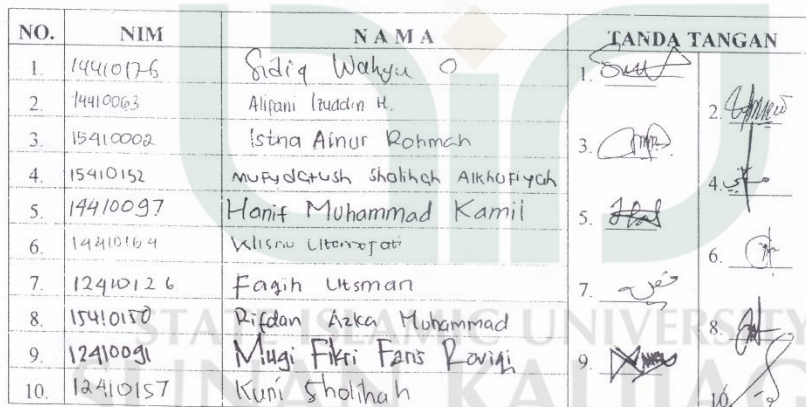 NO. NIM NAMA TANDA TANGAN
1. 14410126 Sidiq Wahyu O 1.
2. 14410063 Alifani Izuddin H. 2.
3. 15410002 Istna Ainur Rohmah 3.
4. 15410152 Mufydatush Sholihah Alkhofiyah 4.
5. 14410097 Hanif Muhammad Kamil 5.
6. 14410164 6.
7. 12410126 Faqih Utsman 7.
8. 15410150 Rifdan Azka Muhammad 8.
9. 12410091 Mugi Fikri Faris 9.
10. 12410157 Kuni Sholihah 10.
STATE ISLAMIC UNIVERSITY
SUNAN KALIJAG